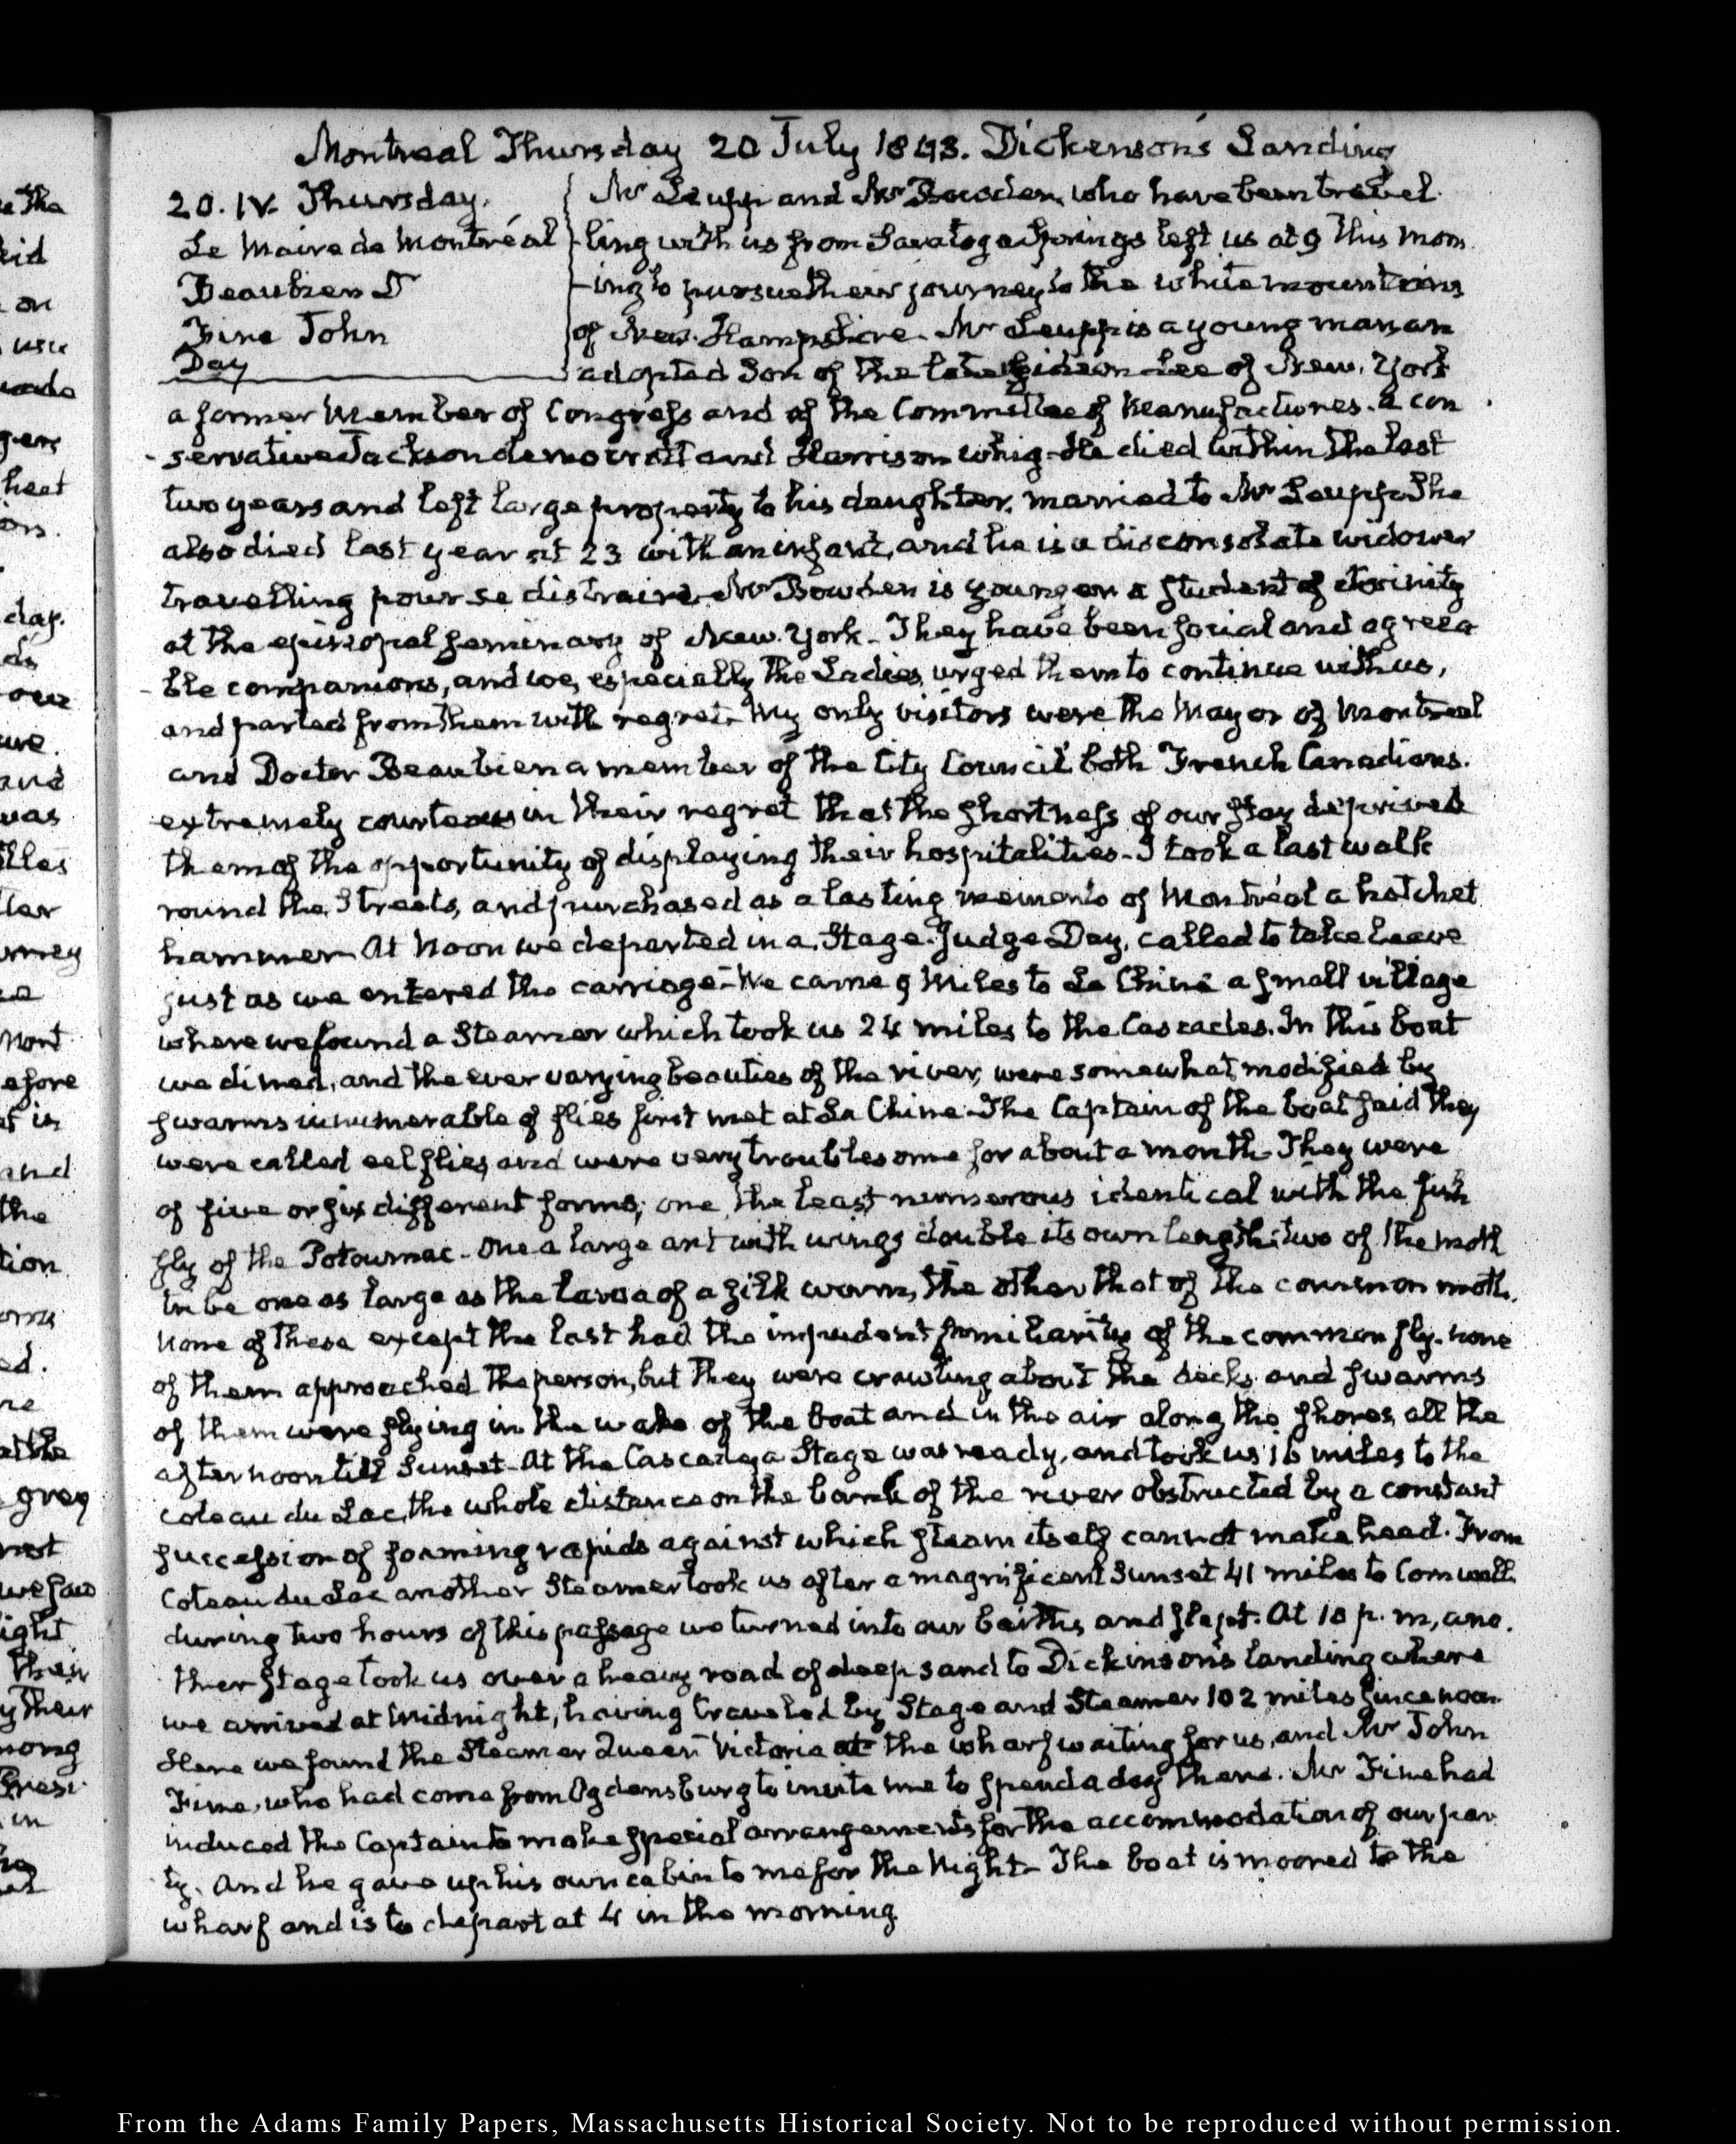 Montreal Thursday 20 July 1843. Dickenson's Landing
20. IV. Thursday.
Le Maire de Montréal
Beaubien D
Fine John
Day
Mr Leupp and Mr Bowden, who have been travel
ling with us from Saratoga Springs left us at 9 this morn
-ing to pursue their journey to the white mountains
of New-Hampshire. Mr Leupp is a young man an
adopted Son of the late Gideon Lee of New-York
a former Member of Congress and of the Committee of Manufactures. a con
-servative Jackson democrat and Harrison whig. He died within the last
two years and left large property to his daughter, married to Mr Leupp. She
also died last year at 23 with an infant, and he is a disconsolate widower
travelling pour se distraire. Mr Bowden is younger a student of divinity
at the episcopal seminary of New-York. They have been social and agreea
-ble companions, and we, especially the Ladies, urged them to continue with us,
and parted from them with regret. My only visitors were the Mayor of Montreal
and Doctor Beaubien a member of the City Council both French Canadians.
extremely courteous in their regret that the shortness of our stay deprived
them of the opportunity of displaying their hospitalities. I took a last walk
round the Streets, and purchased as a lasting memento of Montréal a hatchet
hammer. At Noon we departed in a Stage. Judge Day, called to take leave
just as we entered the carriage. We came 9 Miles to La Chine a small village
where we found a Steamer which took us 24 miles to the Cascades. In this boat
we dined, and the ever varying beauties of the river, were somewhat modified by
swarms innumerable of flies first met at La Chine. The Captain of the boat said they
were called eel flies, and were very troublesome for about a month. They were
of five or six different forms; one, the least numerous identical with the fish
fly of the Potowmac. One a large ant with wings double its own length: two of the moth
tribe one as large as the larva of a silk worm, the other that of the common moth.
None of these except the last had the impudent familiarity of the common fly. none
of them approached the person, but they were crawling about the decks and swarms
of them were flying in the wake of the boat and in the air along the shores, all the
afternoon till Sunset. At the Cascades, a Stage was ready, and took us 16 miles to the
coteau du Lac, the whole distance on the bank of the river obstructed by a constant
succession of foaming rapids against which steam itself cannot make head. From
Coteau du Lac another Steamer took us after a magnificent Sunset 41 miles to Cornwall
during two hours of this passage we turned into our births, and slept. At 10 p.m, ano.
ther stage took us over a heavy road of deep sand to Dickinson's landing where
we arrived at Midnight, having traveled by Stage and Steamer 102 miles since noon.
Here we found the Steamer Queen Victoria at the wharf waiting for us, and Mr John
Fine, who had come from Ogdensburg to invite me to spend a day there. Mr Fine had
induced the Captain to make special arrangements for the accommodation of our par
ty. And he gave up his own cabin to me for the Night. The boat is moored to the
wharf and is to depart at 4 in the morning.
From the Adams Family Papers, Massachusetts Historical Society. Not to be reproduced without permission.